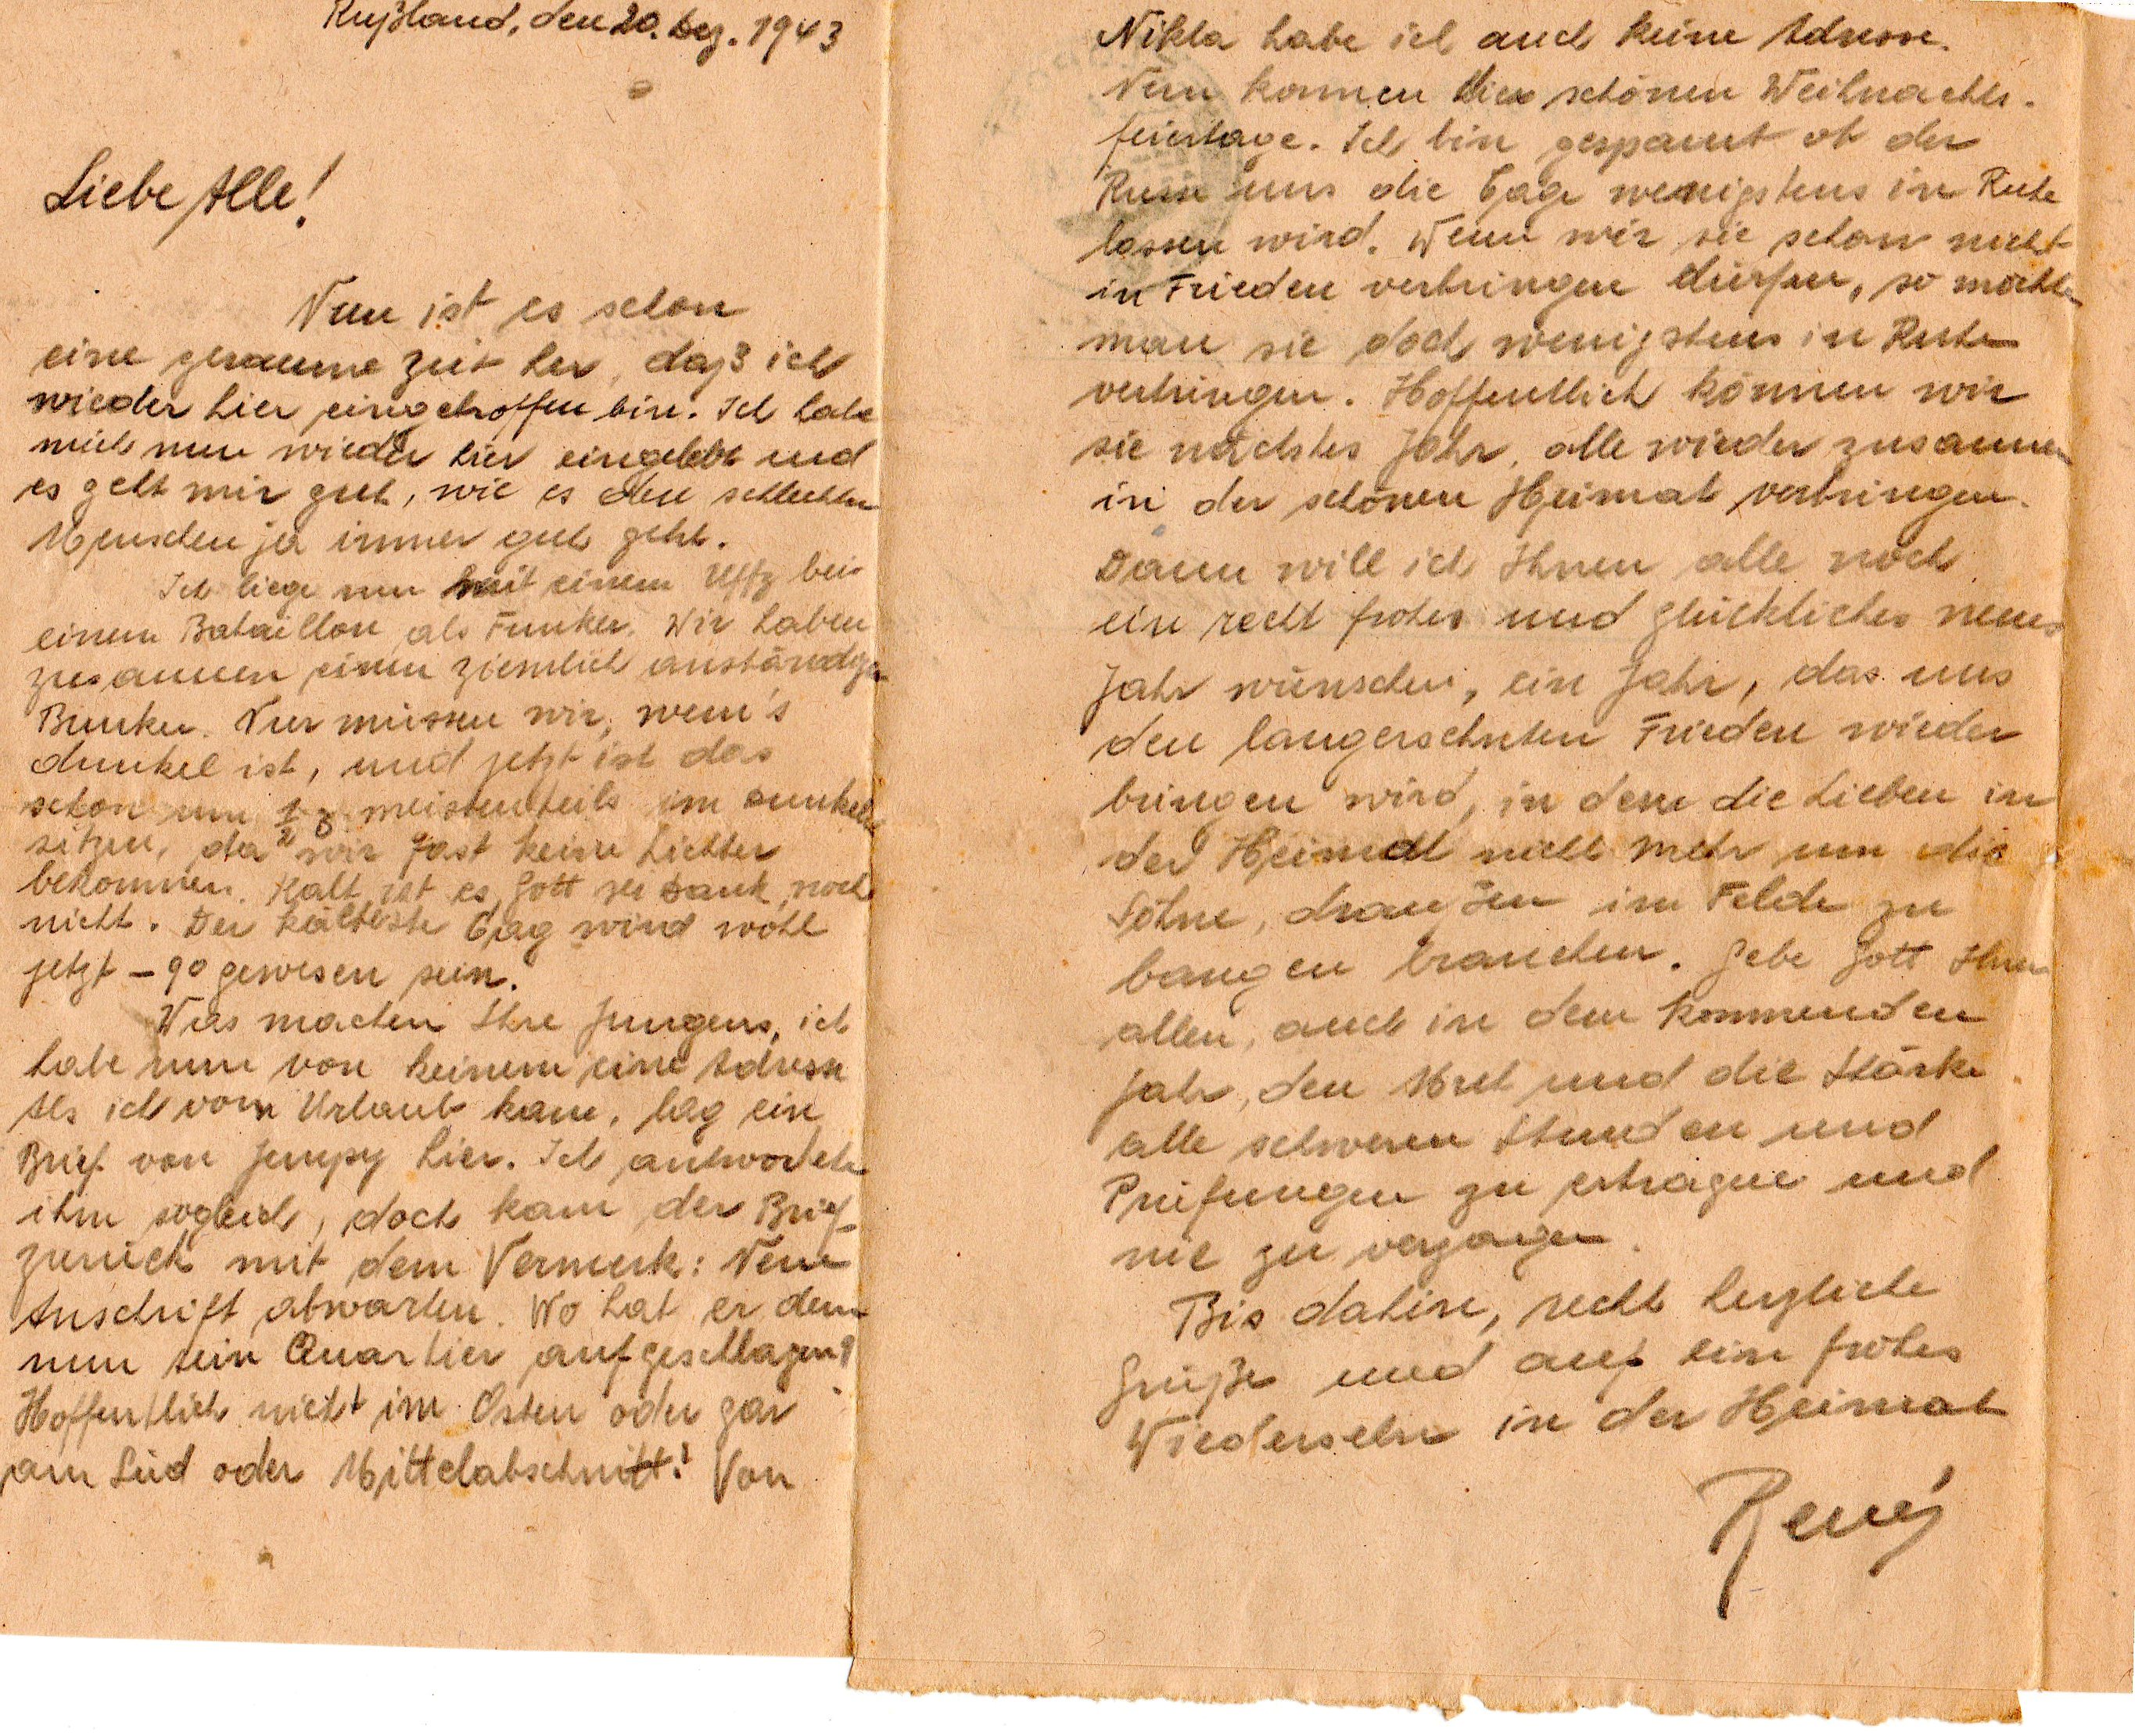 Rußland, den 20. Dez. 1943
Liebe Alle!
Nun ist es schon
eine geraume Zeit her, daß ich
wieder hier eingetroffen bin. Ich habe
mich nun wieder hier eingelebt und
es geht mir gut, wie es den schlechten
Menschen ja immer gut geht.
Ich liege nun mit einem Uffz bei
einem Bataillon als Funker. Wir haben
zusammen einen ziemlich anständigen
Bunker. Nur müssen wir, wenn's
dunkel ist, und jetzt ist das
schon um 1/2 3 meistenteils im dunkeln
sitzen, da wir fast keine Lichter
bekommen. Kalt ist es, Gott sei Dank, noch
nicht. Der kälteste Tag wird wohl
jetzt -9° gewesen sein.
Was machen Ihre Jungens, ich
habe nun von keinem eine Adresse
Als ich vom Urlaub kam, lag ein
Brief von Jempy hier. Ich antwortete
ihm sogleich, doch kam der Brief
zurück mit dem Vermerk: Neue
Anschrift abwarten. Wo hat er denn
nun sein Quartier aufgeschlagen?
Hoffentlich nicht im Osten oder gar
am Süd oder Mittelabschnitt! Von
Nikla habe ich auch keine Adresse.
Nun kommen die schönen Weihnachts-
feiertage. Ich bin gespannt ob der
Russe uns die Tage wenigstens in Ruhe
lassen wird. Wenn wir sie schon nicht
in Frieden verbringen dürfen, so möchte
man sie doch wenigstens in Ruhe
verbringen. Hoffentlich können wir
sie nächstes Jahr, alle wieder zusammen
in der schönen Heimat verbringen.
Dann will ich Ihnen alle noch
ein recht frohes und glückliches neues
Jahr wünschen, ein Jahr, das uns
den langersehnten Frieden wieder
bringen wird, in dem die Lieben in
der Heimat nicht mehr um die
Söhne, draußen im Felde zu
bangen brauchen. Gebe Gott Ihnen
allen, auch in dem kommenden
Jahr, den Mut und die Stärke
alle schweren Stunden und
Prüfungen zu ertragen und
nie zu verzagen.
Bis dahin, recht herzliche
Grüße und auf ein frohes
Wiedersehn in der Heimat
René